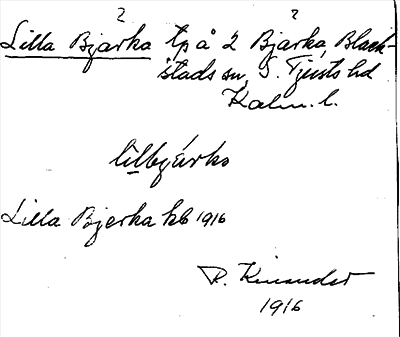 ? ?
Lilla Bjärka tp å 2 Bjärka, Black-
stads sn, S. Tjusts hd
Kalm. l.
lìllbjärko
Lilla Bjerka kb 1916
R. Kinander
1916